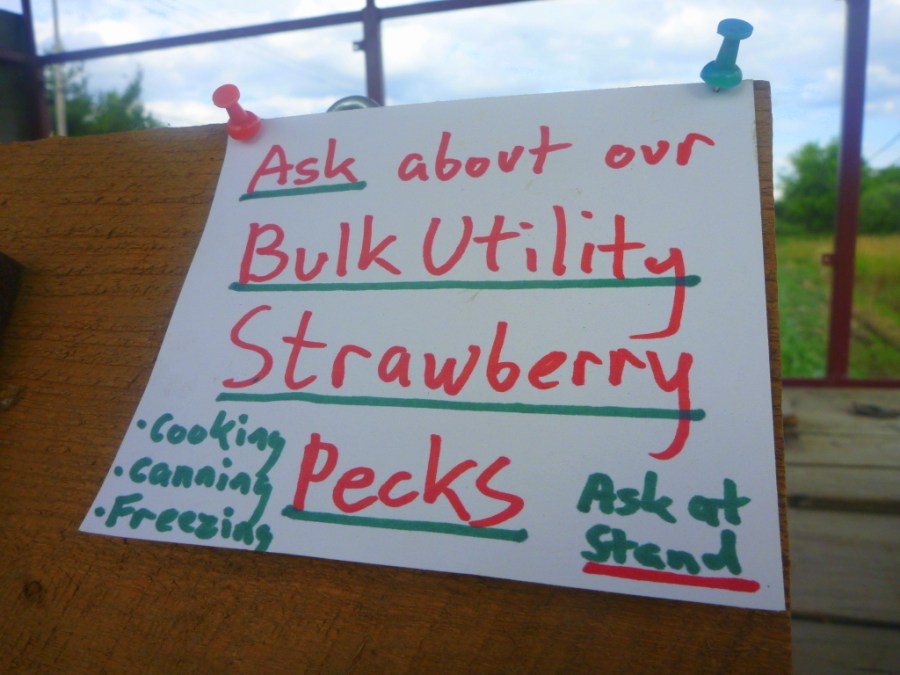 Ask about our
Bulk Utility
Strawberry
Pecks
• Cooking
• Canning
• Freezing
Ask at
Stand